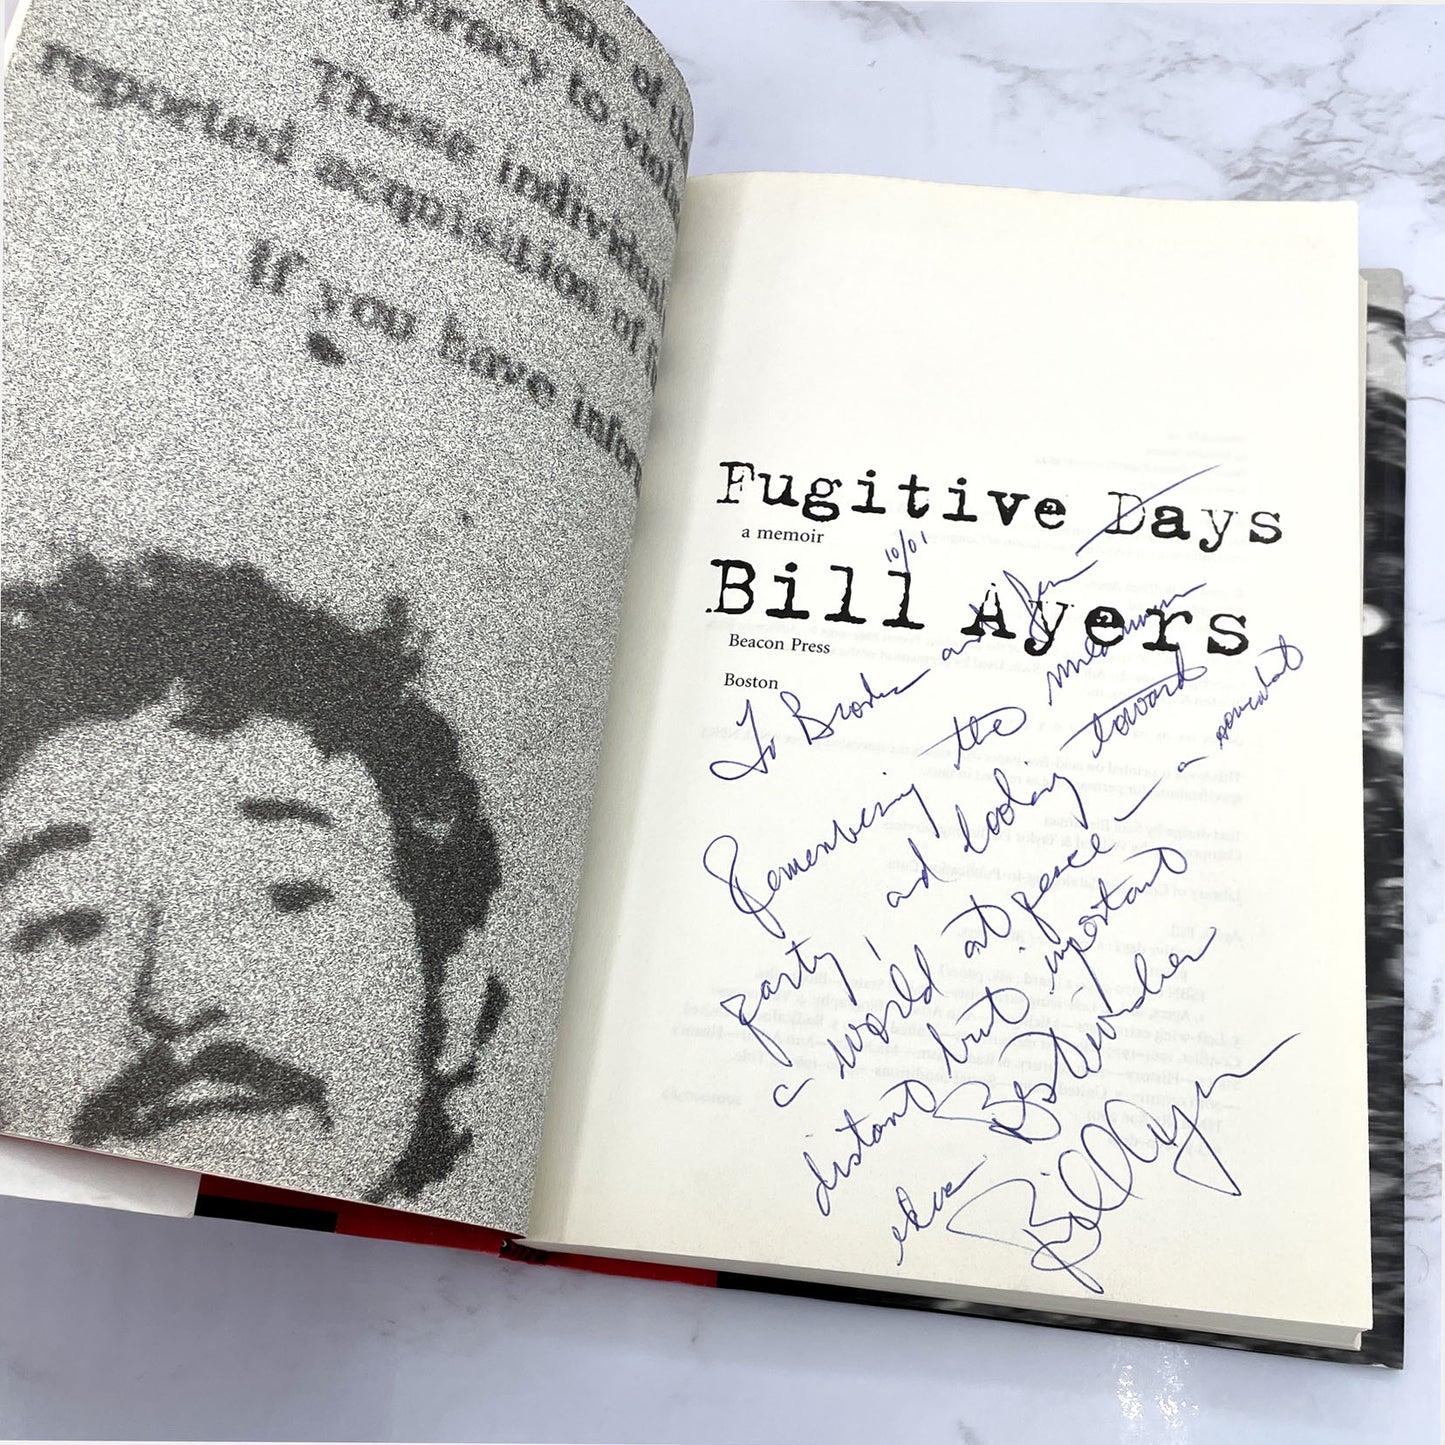 ome of th
piracy to viola
These individual
reported acquisition of
If you have inform
Fugitive Days
a memoir
Bill Ayers
Beacon Press
Boston
10/01
To and
Remembering the millennium
party, and looking toward
a world at peace – a somewhat
distant but important
idea.
Best wishes
Bill Ayers